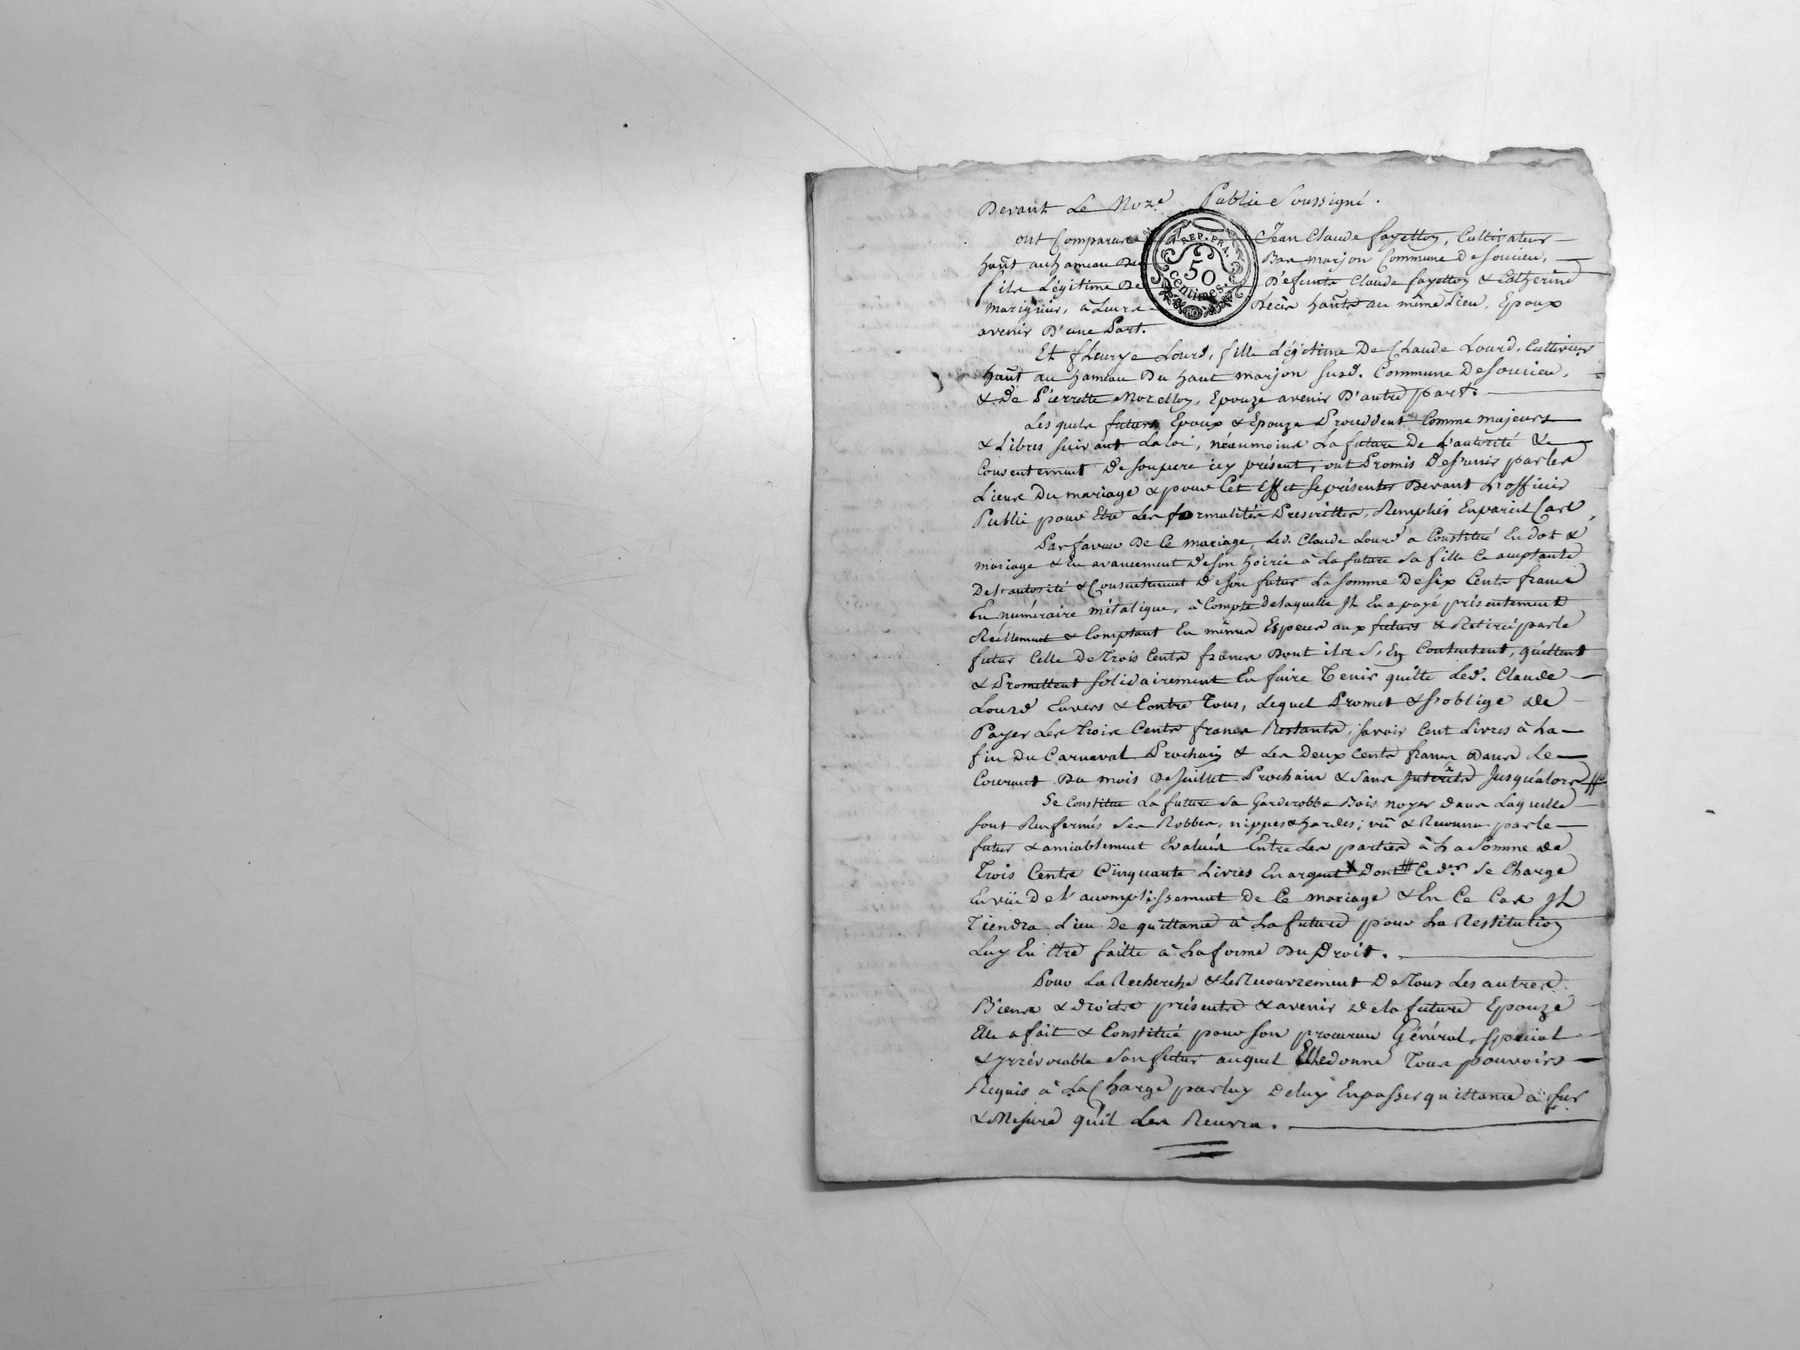 Devant Le No.re Public Soussigné.
ont Comparu Jean Claude fayetton, Cultivateur
hant au hameau du Bas marjon Commune de Soucieu,
fils Légitime de Défunts Claude fayetton & Catherine
Marignier, à Leurs Décès hants au même Lieu, Epoux
avenir D'une Part.
Et fleurye Lourd, fille Légitime De Claude Lourd, Cultivr
hant au hameau Du haut marjon susd. Commune de Soucieu,
& De Pierrette Morellon, Epouze avenir D'autre part.
Lesquels futurs Epoux & Epouze Procédent Comme majeurs
& Libres suivant La loi, néanmoins La future De L'autorité &
Consentement de son pere icy présent, ont Promis de s'unir par les
Liens Du mariage & pour Cet Effet se présenter Devant L'officier
Public pour Etre Les formalités Prescrittes, Remplies En pareil Cas,
Par faveur De Ce mariage, Led. Claude Lourd a Constitué En dot &
mariage & En avancement de son hoirie à La future sa fille Ce aceptante
De L'autorité & Consentement de son futur La somme de six Cents francs
En numéraire métalique, à Compte de laquelle Il En a payé présentement
Réellement & Comptant En mêmes Especes aux futurs & Retiré par le
futur Celle De trois Cents francs Dont ils s'En Contentent, quittent
& Promettent solidairement En faire Tenir quitte Led. Claude
Lourd Envers & Contre Tous, Lequel Promet & s'oblige de
Payer Les trois Cents francs Restants, savoir Cent Livres à La
fin Du Carnaval Prochain & Les Deux Cents francs Dans Le
Courant Du mois De Juillet Prochain & sans Intérêts Jusqu'alors
Se Constitue La future sa Garderobbe Bois noyer dans Laquelle
sont Renfermés ses Robbes, nippes & hardes, vû & Reconnu par le
futur & amiablement Evalués Entre Les parties à La Somme de
Trois Cents Cinquante Livres En argent Dont Ce d.er se Charge
En vüe De L'acomplissement de Ce mariage & En Ce Cas Il
Tiendra Lieu De quittance à La future pour La Restitution
Luy En Etre faitte à La forme Du Droit.
Pour La Recherche & Le Recouvrement De Tous Les autres
Biens & droits présents & avenir de la future Epouze
Elle a fait & Constitué pour son procureur Général, spécial
& Irrévocable son futur auquel Elle donne Tous pouvoirs
Requis à La Charge par luy de luy En passer quittance à fur
& Mesure qu'il Les Recevra.
REP. FRA.
50
centimes.